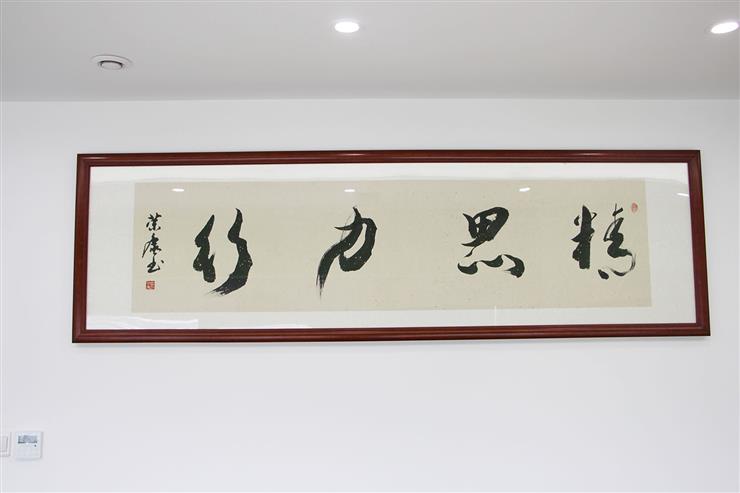 精思力行
荣康书